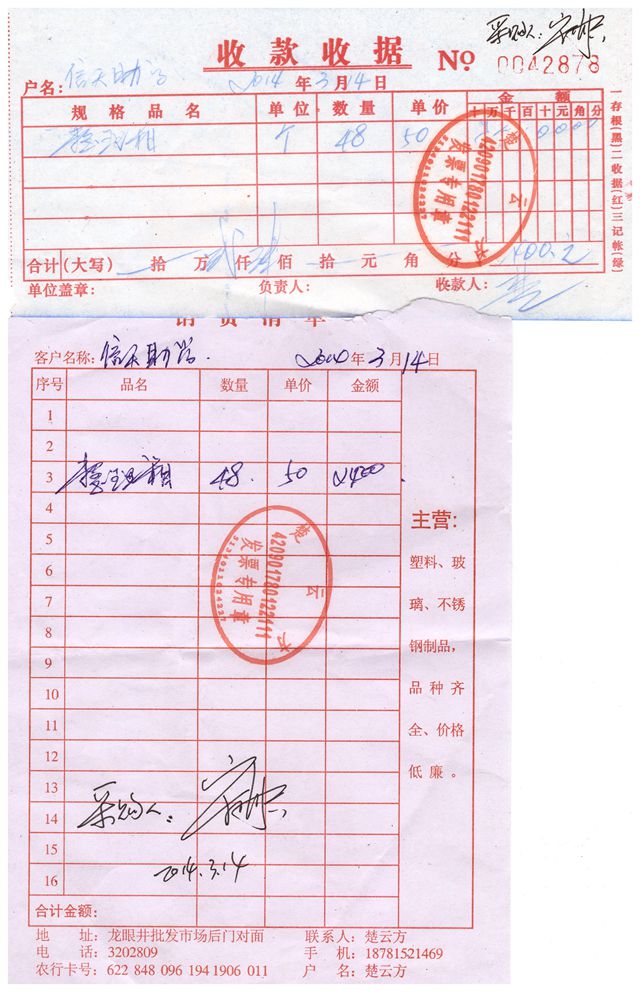 采购人:
收款收据 No 0042878
户名: 信天助学 2014 年 3 月 14 日
规格品名 单位 数量 单价 金额
十 万 千 百 十 元 角 分
整理箱 个 48 50
一存根(黑)二收据(红)三记帐(绿)
楚云方
420901780122111
发票专用章
合计(大写) 拾 万 贰仟 肆佰 拾 元 角 分 2400.元
单位盖章: 负责人: 收款人:
销货清单
客户名称: 信天助学. 年 3 月 14 日
序号 品名 数量 单价 金额
1
2
3 整理箱 48. 50 2400
4
5
6
7
8
9
10
11
12
13
14
15
16
楚云方
420901780122111
发票专用章
主营:
塑料、玻
璃、不锈
钢制品,
品种齐
全、价格
低廉。
采购人:
2014.3.14
合计金额:
地 址: 龙眼井批发市场后门对面 联系人: 楚云方
电 话: 3202809 手 机: 18781521469
农行卡号: 622 848 096 194 1906 011 户 名: 楚云方